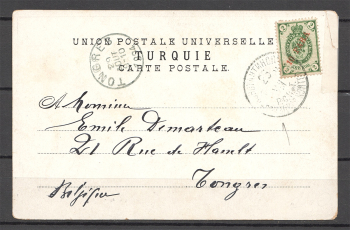 UNION POSTALE UNIVERSELLE
TURQUIE
CARTE POSTALE.
TONGRES
A Monsieur
Emile Demarteau
21 Rue de Hasselt
Tongres
Belgique